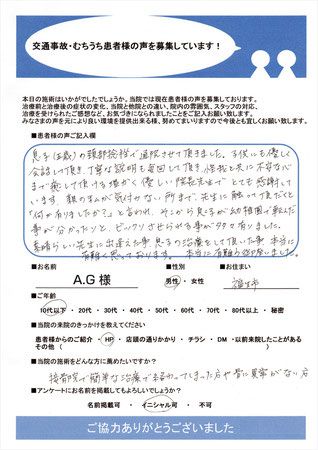 交通事故・むちうち患者様の声を募集しています！
本日の施術はいかがでしたでしょうか。当院では現在患者様の声を募集しております。
治療前と治療後の症状の変化、当院と他院との違い、院内の雰囲気、スタッフの対応、
治療を受けられたご感想など、お気づきになられましたことをご記入お願い致します。
みなさまの声を元により良い環境を提供出来る様、努めてまいりますので今後とも宜しくお願い致します。
■患者様の声ご記入欄
息子(5歳)の頸部捻挫で通院させて頂きました。子供にも優しく
会話して頂き、丁寧な説明も毎回して頂き、怪我と共に不安な
まで癒して頂ける暖かく優しい院長先生でとても感謝してい
います。親の私が気付かない所まで、先生に触って頂だくと
「何かありましたか?」と言われ、そこから息子が幼稚園で転んだ
事が分かったりと、ビックリさせられる事が多々有りました。
素晴らしい先生に出逢えた事、息子の治療をして頂いた事、本当に
有難く思っております。本当に有難う御座いました。
■お名前 ■性別 ■お住まい
A.G 様 男性・女性 福生市
■ご年齢
10代以下・20代・30代・40代・50代・60代・70代・80代以上・秘密
■当院の来院のきっかけを教えてください
患者様からのご紹介・HP・店頭の通りかかり・チラシ・DM・以前来院したことがある
その他（ ）
■当院の施術をどんな方に薦めたいですか？
接骨院で簡単な治療で終わってしまった方や骨に異常がない方
■アンケートにお名前を掲載してもよろしいでしょうか？
名前掲載可・イニシャル可・不可
ご協力ありがとうございました